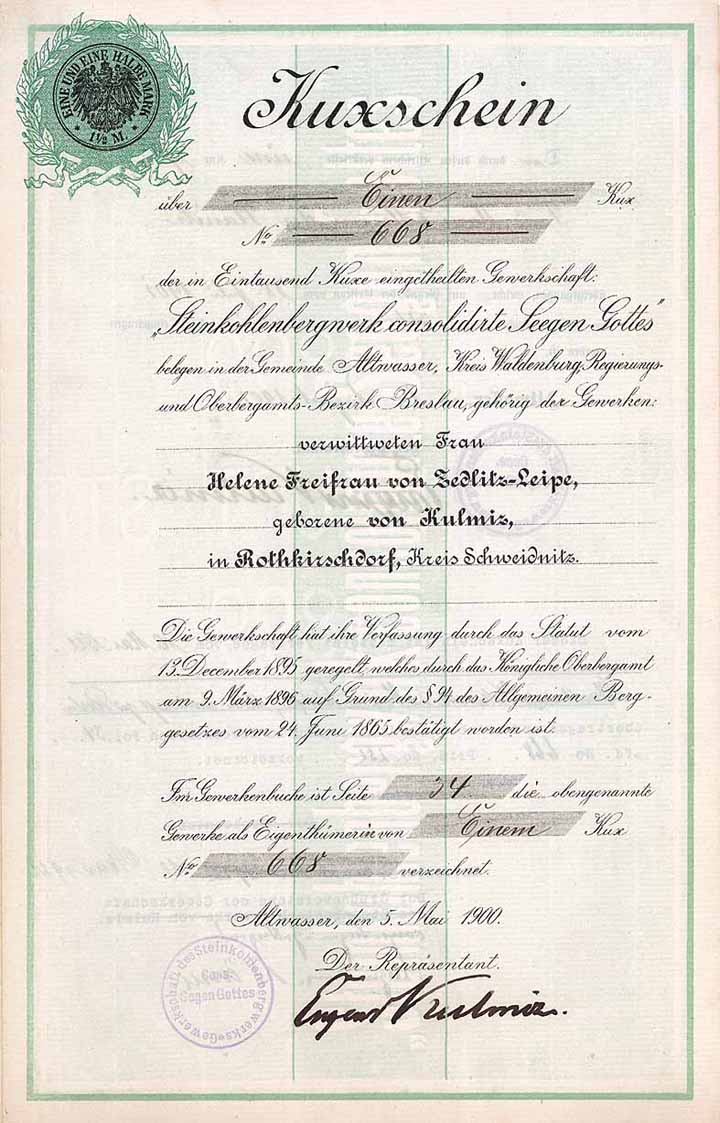 EINE UND EINE HALBE MARK
1½ M.
Kuxschein
über Einen Kux
No. 668
der in Eintausend Kuxe eingetheilten Gewerkschaft:
„Steinkohlenbergwerk consolidirte Seegen Gottes“
belegen in der Gemeinde Altwasser, Kreis Waldenburg, Regierungs-
und Oberbergamts-Bezirk Breslau, gehörig der Gewerken:
verwittweten Frau
Helene Freifrau von Zedlitz-Leipe,
geborene von Kulmiz,
in Rothkirschdorf, Kreis Schweidnitz.
Die Gewerkschaft hat ihre Verfassung durch das Statut vom
13. December 1895 geregelt, welches durch das Königliche Oberbergamt
am 9. März 1896 auf Grund des § 94 des Allgemeinen Berg-
gesetzes vom 24. Juni 1865 bestätigt worden ist.
Im Gewerkenbuche ist Seite 34 die obengenannte
Gewerke als Eigenthümerin von Einem Kux
No. 668 verzeichnet.
Altwasser, den 5. Mai 1900.
Der Repräsentant.
Eugen v Kulmiz.
Gewerkschaft des Steinkohlenbergwerks
Cons.
Seegen Gottes